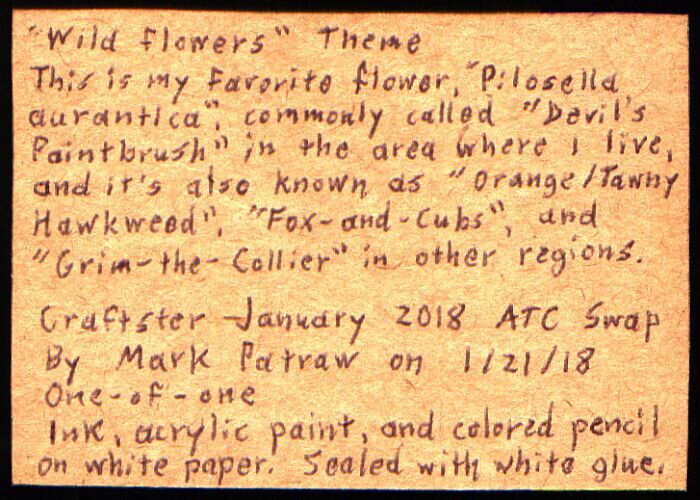 "Wild flowers" Theme
This is my favorite flower, "Pilosella
aurantica", commonly called "Devil's
Paintbrush" in the area where I live,
and it's also known as "Orange/Tawny
Hawkweed", "Fox-and-Cubs", and
"Grim-the-Collier" in other regions.
Craftster January 2018 ATC Swap
By Mark Patraw on 1/21/18
One-of-one
Ink, acrylic paint, and colored pencil
on white paper. Sealed with white glue.